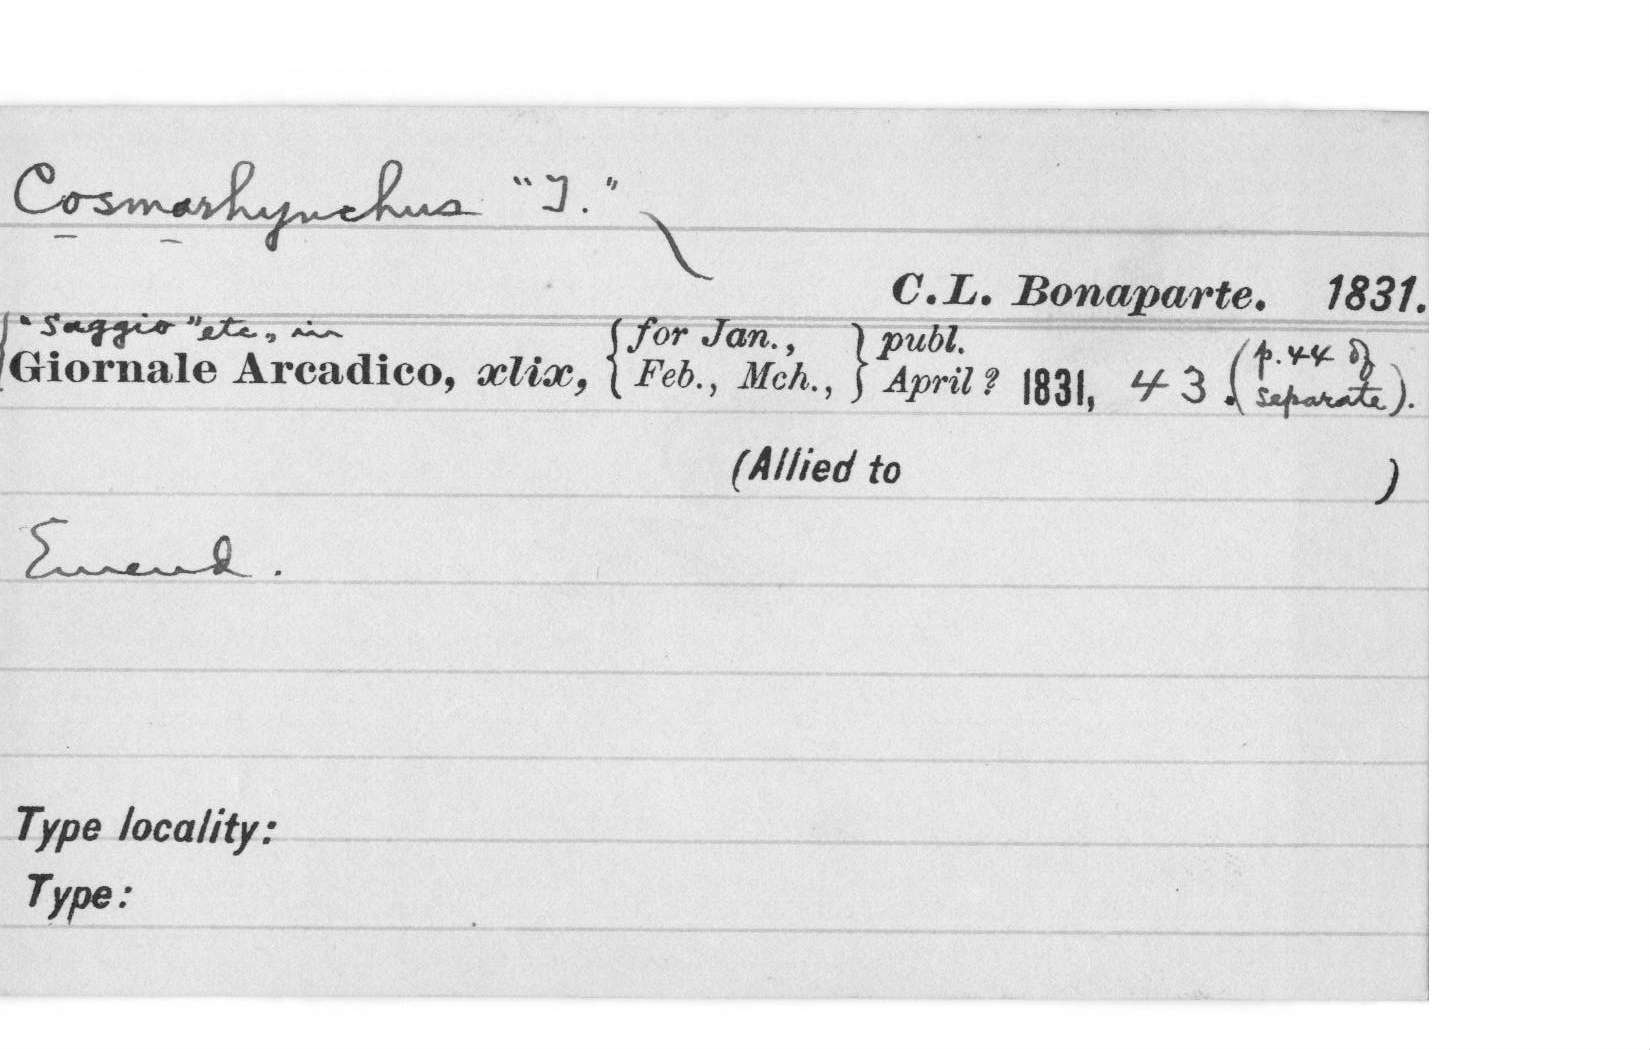 Cosmarhynchus "T."
C.L. Bonaparte. 1831.
"Saggio" etc., in
Giornale Arcadico, xlix, {for Jan., Feb., Mch.,} publ. April? 1831, 43. (p. 44 of separate).
(Allied to )
Emend.
Type locality:
Type: